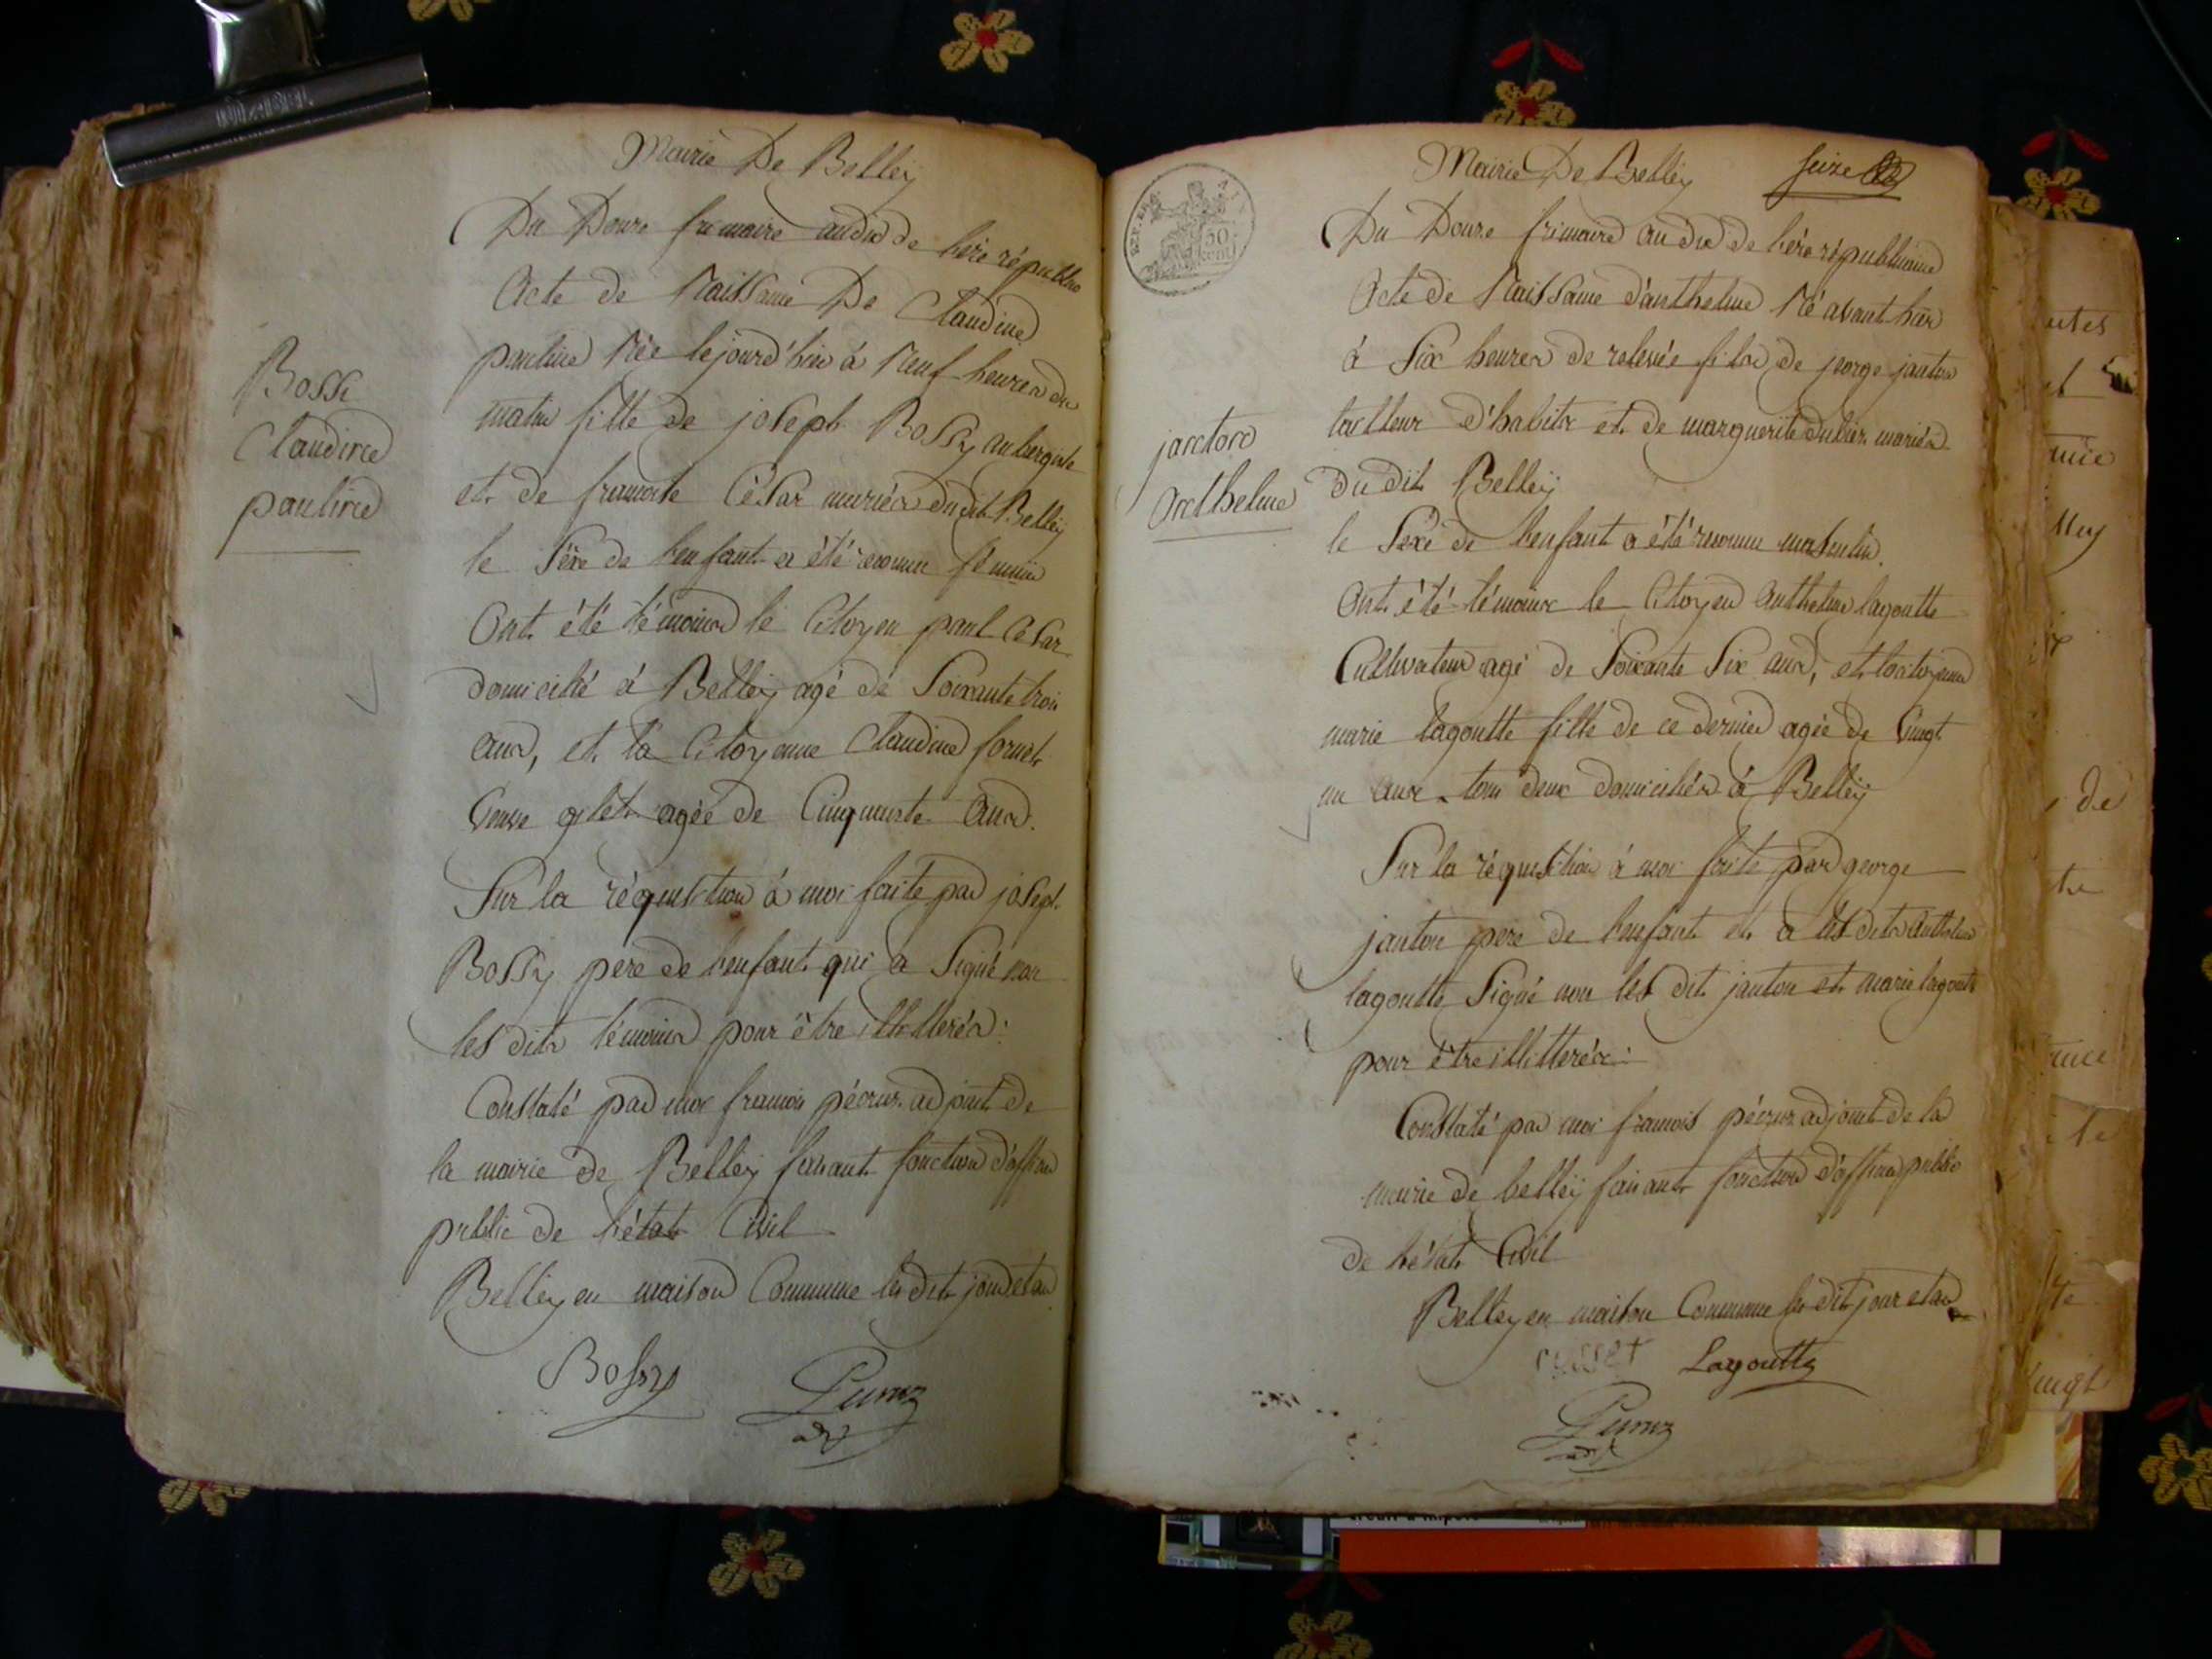 Mairie De Belleÿ
Du Douze frimaire an dix de l'ère républic
Acte de Naissance De Claudine
pauline Née cejourd'hui à Neuf heures du
matin fille de joseph Bossy aubergiste
et de francoise César mariés du dit Belleÿ
le Sexe de l'enfant a été reconnu féminin
Ont été témoins le Citoyen paul César
domicilié à Belleÿ agé de Soixante trois
ans, et la Citoyenne Claudine fornet
Veuve gilet agée de Cinquante Ans.
Sur la réquisition à moi faite par joseph
Bossy pere de l'enfant qui a Signé non
les dits témoins pour être illitterés :
Constaté par moi francois pécruz adjoint de
la mairie de Belleÿ faisant fonction d'officier
public de l'état Civil
Belleÿ en maison Commune les dit jour et an
Bossy
adj
Bossi
Claudine
pauline
REP. FRA.
50
CENT
Mairie De Belleÿ
Seize
Du Douze frimaire an dix de l'ère républicaine
Acte de Naissance d'anthelme Né avant hier
à Six heures de relevée fils de jeorge janton
tailleur d'habits et de marguerite dubier mariés
du dit Belleÿ
le Sexe de l'enfant a été reconnu masculin.
Ont été témoins le Citoyen Anthelme lagoutte
Cultivateur agé de Soixante Six ans, et la citoyenne
marie lagoutte fille de ce dernier agée de Vingt
un ans tous deux domiciliés à Belleÿ
Sur la réquisition à moi faite par george
janton pere de l'enfant et a les dits Anthelme
lagoutte Signé non les dit janton et marie lagoutte
pour être illitterés :
Constaté par moi francois pécruz adjoint de la
mairie de belleÿ faisant fonction d'officier public
de l'état Civil
Belleÿ en maison Commune les dit jour et an
Lagoutte
adj
janton
Anthelme
de